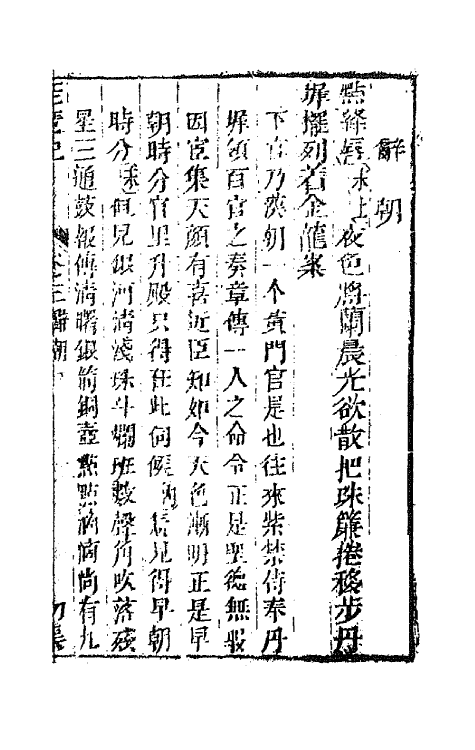 辭朝
點絳唇 末上 夜色將闌晨光欲散把珠簾捲移步丹
墀擺列着金龍案
下官乃漢朝一个黄門官是也往來紫禁侍奉丹
墀領百官之奏章傳一人之命令正是聖德無瑕
因宦集天顔有喜近臣知如今天色漸明正是早
朝時分官里升殿只得在此伺候 内 怎見得早朝
時分 末 但見銀河清淺珠斗斕班數聲角吹落殘
星三通鼓報傳清曙銀箭銅壺點點滴滴尚有九
卷之三 辭朝 初集